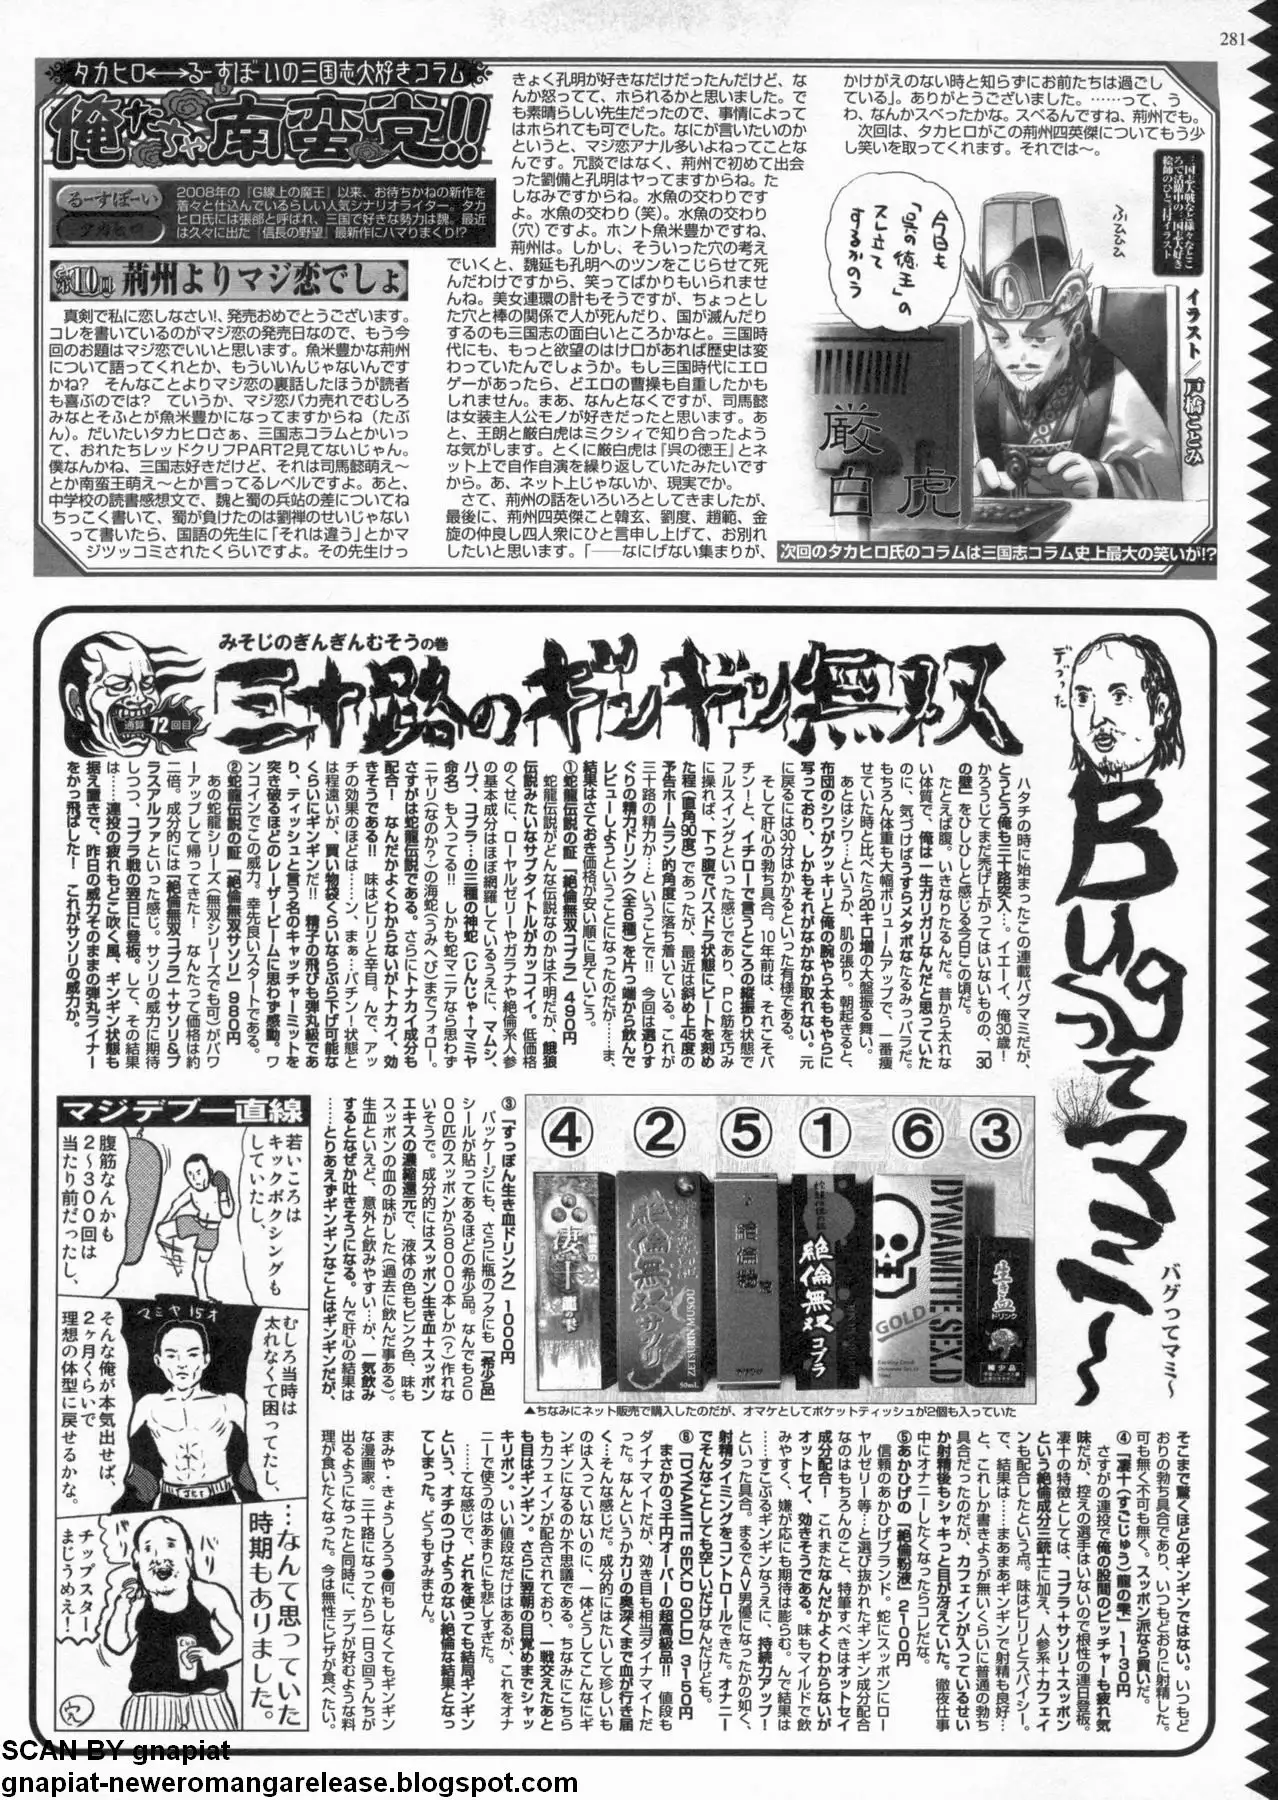 281
タカヒロ⟷るーすぼーいの三国志大好きコラム
俺たちゃ南蛮党!!
るーすぼーい
タカヒロ
2008年の『G線上の魔王』以来、お待ちかねの新作を
着々と仕込んでいるらしい人気シナリオライター。タカ
ヒロ氏には張郃と呼ばれ、三国で好きな勢力は魏。最近
は久々に出た『信長の野望』最新作にハマりまくり!?
第10回 荊州よりマジ恋でしょ
真剣で私に恋しなさい!、発売おめでとうございます。
コレを書いているのがマジ恋の発売日なので、もう今
回のお題はマジ恋でいいと思います。魚米豊かな荊州
について語ってくれとか、もういいんじゃないんです
かね? そんなことよりマジ恋の裏話したほうが読者
も喜ぶのでは? ていうか、マジ恋バカ売れでむしろ
みなとそふとが魚米豊かになってますからね(たぶ
ん)。だいたいタカヒロさぁ、三国志コラムとかいっ
て、おれたちレッドクリフPART2見てないじゃん。
僕なんかね、三国志好きだけど、それは司馬懿萌え〜
とか南蛮王萌え〜とか言ってるレベルですよ。あと、
中学校の読書感想文で、魏と蜀の兵站の差についてね
ちっこく書いて、蜀が負けたのは劉禅のせいじゃない
って書いたら、国語の先生に「それは違う」とかマ
ジツッコミされたくらいですよ。その先生けっ
きょく孔明が好きなだけだったんだけど、な
んか怒ってて、ホられるかと思いました。で
も素晴らしい先生だったので、事情によって
はホられても可でした。なにが言いたいのか
というと、マジ恋アナル多いよねってことな
んです。冗談ではなく、荊州で初めて出会
った劉備と孔明はヤってますからね。た
しなみですからね。水魚の交わりです
よ。水魚の交わり(笑)。水魚の交わり
(穴)ですよ。ホント魚米豊かですね、
荊州は。しかし、そういった穴の考え
でいくと、魏延も孔明へのツンをこじらせて死
んだわけですから、笑ってばかりもいられませ
んね。美女連環の計もそうですが、ちょっとし
た穴と棒の関係で人が死んだり、国が滅んだり
するのも三国志の面白いところかなと。三国時
代にも、もっと欲望のはけ口があれば歴史は変
わっていたんでしょうか。もし三国時代にエロ
ゲーがあったら、どエロの曹操も自重したかも
しれません。まあ、なんとなくですが、司馬懿
は女装主人公モノが好きだったと思います。あ
と、王朗と厳白虎はミクシィで知り合ったよう
な気がします。とくに厳白虎は『呉の徳王』とネ
ット上で自作自演を繰り返していたみたいです
から。あ、ネット上じゃないか、現実でか。
さて、荊州の話をいろいろとしてきましたが、
最後に、荊州四英傑こと韓玄、劉度、趙範、金
旋の仲良し四人衆にひと言申し上げて、お別れ
したいと思います。「――なにげない集まりが、
かけがえのない時と知らずにお前たちは過ごし
ている」。ありがとうございました。……って、う
わ、なんかスベったかな。スベるんですね、荊州でも。
次回は、タカヒロがこの荊州四英傑についてもう少
し笑いを取ってくれます。それでは〜。
三国志大戦など様々なところで活躍中の三国志大好き絵師のひと言付イラスト
イラスト/戸橋ことみ
今日も
「呉の徳王」の
スレ立て
するかのう
ふひひひ
厳
白 虎
次回のタカヒロ氏のコラムは三国志コラム史上最大の笑いが!?
デブった
Bugってマミ〜
バグってマミ〜
みそじのぎんぎんむそうの巻
三十路のギンギン無双
通算72回目
ハタチの時に始まったこの連載バグマミだが、
とうとう俺も三十路突入…。イエーイ、俺30歳!
かろうじてまだ禿げ上がってはいないものの、「30
の壁」をひしひしと感じる今日この頃だ。
たとえば腹。いきなりたるんだ。昔から太れな
い体質で、俺は一生ガリガリなんだと思っていた
のに、気づけばうすらメタボなたるみっバラだ。
もちろん体重も大幅ボリュームアップで、一番痩
せていた時と比べたら20キロ増の大盤振る舞い。
あとはシワ…というか、肌の張り。朝起きると、
布団のシワがクッキリと俺の腕やら太ももやらに
写っており、しかもそれがなかなか取れない。元
に戻るには30分はかかるといった有様である。
そして肝心の勃ち具合。10年前は、それこそバ
チーンと、イチローで言うところの縦振り状態で
フルスイングといった感じであり、PC筋を巧み
に操れば、下っ腹でバスドラ状態にビートを刻め
た程(直角90度)であったが、最近は斜め上45度の
予告ホームラン的角度に落ち着いている。これが
三十路の精力か…ということで!! 今回は選りす
ぐりの精力ドリンク(全6種)を片っ端から飲んで
レビューしようということになったのだが……ま、
結果はさておき価格が安い順に見ていこう。
①蛇龍伝説の証「絶倫無双コブラ」490円
蛇龍伝説がどんな伝説なのかは不明だが、餓狼
伝説みたいなサブタイトルがカッコイイ。低価格
のくせに、ローヤルゼリーやガラナや絶倫系人参
の基本成分はほぼ網羅しているうえに、マムシ、
ハブ、コブラ…の三種の神蛇(じんじゃ=マミヤ
命名)も入ってる!! しかも蛇マニアなら思わず
ニヤリ(なのか?)の海蛇(うみへび)までフォロー。
さすがは蛇龍伝説である。さらにトナカイ成分も
配合! なんだかよくわからないがトナカイ、効
きそうである!! 味はピリリと辛目。んで、アッ
チの効果のほどは…ン、まぁ…バチーン状態と
は程遠いが、買い物袋くらいならぶら下げ可能な
くらいにギンギンだ!! 精子の飛びも弾丸級であ
り、ティッシュと言う名のキャッチャーミットを
突き破るほどのレーザービームに思わず感動。ワ
ンコインでこの威力。幸先良いスタートである。
②蛇龍伝説の証「絶倫無双サソリ」980円
あの蛇龍シリーズ(無双シリーズでも可)がパワ
ーアップして帰ってきた! なんたって価格は約
二倍。成分的には「絶倫無双コブラ」+サソリ&プ
ラスアルファといった感じ。サソリの威力に期待
しつつ、コブラ戦の翌日に登板。して、その結果
は……連投の疲れもどこ吹く風、ギンギン状態も
据え置きで、昨日の威力そのままの弾丸ライナー
をかっ飛ばした! これがサソリの威力か。
③「すっぽん生き血ドリンク」1000円
パッケージにも、さらに瓶のフタにも「希少品」
シールが貼ってあるほどの希少品。なんでも20
00匹のスッポンから8000本しか(?)作れな
いそうで。成分的にはスッポン生き血+スッポン
エキスの濃縮還元で、液体の色もピンク色、味も
スッポンの血の味がした(過去に飲んだ事ある)。
生血といえど、意外と飲みやすい…が、一気飲み
するとなぜか吐きそうになる。んで肝心の結果は
…とりあえずギンギンなことはギンギンだが、
④ ② ⑤ ① ⑥ ③
凄十
龍の雫
絶倫無双サソリ
ZETSURIN MUSOU
50mL
絶倫粉液
絶倫無双コブラ
DYNAMITE SEX.D
GOLD
生き血
ドリンク
希少品
▲ちなみにネット販売で購入したのだが、オマケとしてポケットティッシュが2個も入っていた
そこまで驚くほどのギンギンではない。いつもど
おりの勃ち具合であり、いつもどおりに射精した。
可も無く不可も無く。スッポン派なら買いだ。
④「凄十(すごじゅう)龍の雫」1130円
さすがの連投で俺の股間のピッチャーも疲れ気
味だが、控えの選手はいないので根性の連日登板。
凄十の特徴としては、コブラ+サソリ+スッポン
という絶倫成分三銃士に加え、人参系+カフェイ
ンも配合したという点。味はピリリとスパイシー。
で、結果は……まあまあギンギンで射精も良好…
と、これしか書きようが無いくらいに普通の勃ち
具合だったのだが、カフェインが入っているせい
か射精後もシャキっと目が冴えていた。徹夜仕事
中にオナニーしたくなったらコレだな。
⑤あかひげの「絶倫粉液」2100円
信頼のあかひげブランド。蛇にスッポンにロー
ヤルゼリー等…と選び抜かれたギンギン成分配合
なのはもちろんのこと、特筆すべきはオットセイ
成分配合! これまたなんだかよくわからないが
オットセイ、効きそうである。味もマイルドで飲
みやすく、嫌が応にも期待は膨らむ。んで結果は
……すこぶるギンギンなうえに、持続力アップ!
といった具合。まるでAV男優になったかの如く、
射精タイミングをコントロールできた。オナニー
でそんなことしても空しいだけなんだけども。
⑥「DYNAMITE SEX.D GOLD」3150円
まさかの3千円オーバーの超高級品!! 値段も
ダイナマイトだが、効き目も相当ダイナマイトだ
った。なんというかカリの奥深くまで血が行き届
く…そんな感じだ。成分的にはたいして珍しいも
のは入っていないのに、一体どうしてこんなにギ
ンギンになるのか不思議である。ちなみにこちら
もカフェインが配合されており、一戦交えたあと
も目はギンギン。さらに翌朝の目覚めまでシャッ
キリポン。いい値段なだけはあるが、これをオナ
ニーで使うのはあまりにも悲しすぎた。
……てな感じで、どれを使っても結局ギンギン
という、オチのつけようのない絶倫な結果となっ
てしまった。どうもすみません。
まみや・きょうしろう●何もしなくてもギンギン
な漫画家。三十路になってから一日3回うんちが
出るようになったと同時に、デブが好むような料
理が食いたくなった。今は無性にピザが食べたい。
マジデブ一直線
若いころは
キックボクシングも
していたし、
腹筋なんかも
2〜300回は
当たり前だったし、
マミヤ15才
むしろ当時は
太れなくて困ってたし、
そんな俺が本気出せば、
2ヶ月くらいで
理想の体型に戻せるかな。
…なんて思っていた
時期もありました。
チップスター
まじうめえ!
穴
SCAN BY gnapiat
gnapiat-neweromangarelease.blogspot.com